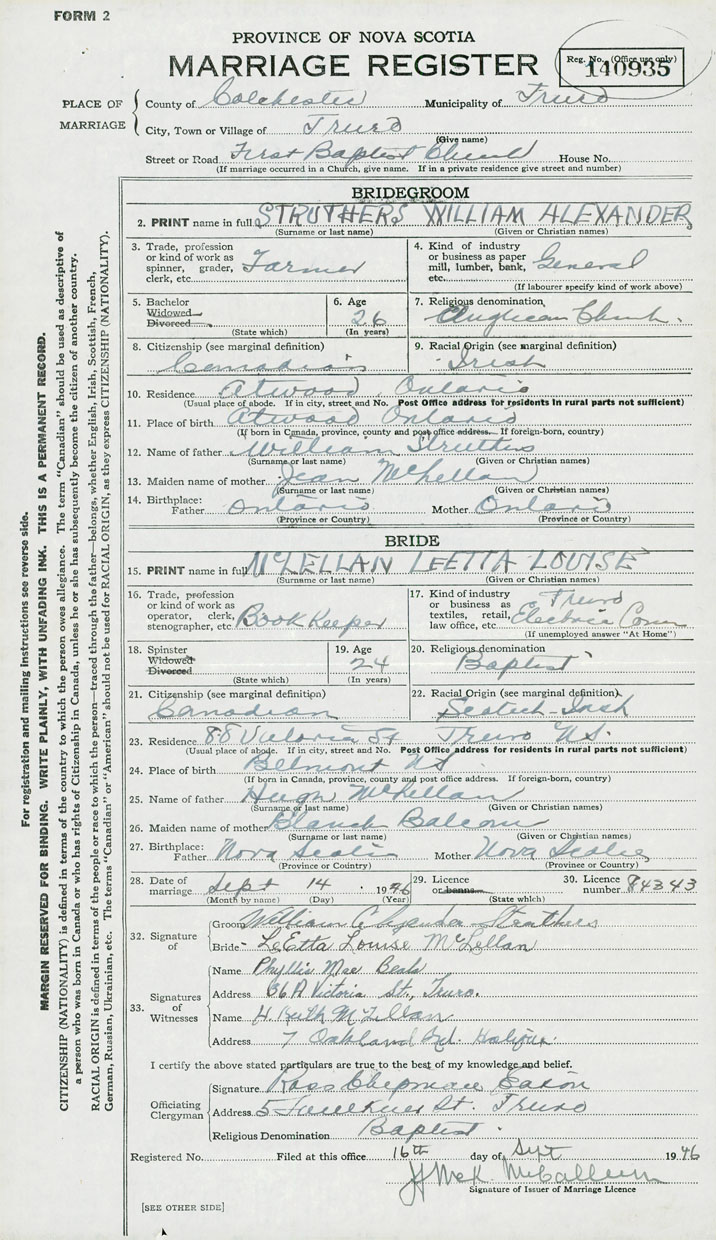 FORM 2
PROVINCE OF NOVA SCOTIA
MARRIAGE REGISTER
Reg. No. (Office use only)
140935
PLACE OF MARRIAGE
County of Colchester Municipality of Truro
City, Town or Village of Truro
(Give name)
Street or Road First Baptist Church House No.
(If marriage occurred in a Church, give name. If in a private residence give street and number)
BRIDEGROOM
2. PRINT name in full STRUTHERS WILLIAM ALEXANDER
(Surname or last name) (Given or Christian names)
3. Trade, profession or kind of work as spinner, grader, clerk, etc. Farmer
4. Kind of industry or business as paper mill, lumber, bank, etc. General
(If labourer specify kind of work above)
5. Bachelor Widowed Divorced (State which)
6. Age 26 (In years)
7. Religious denomination Anglican Church.
8. Citizenship (see marginal definition) Canadian
9. Racial Origin (see marginal definition) Irish
10. Residence Atwood, Ontario
(Usual place of abode. If in city, street and No. Post Office address for residents in rural parts not sufficient)
11. Place of birth Atwood Ontario
(If born in Canada, province, county and post office address. If foreign-born, country)
12. Name of father William Struthers
(Surname or last name) (Given or Christian names)
13. Maiden name of mother Jean McLellan
(Surname or last name) (Given or Christian names)
14. Birthplace: Father Ontario Mother Ontario
(Province or Country) (Province or Country)
BRIDE
15. PRINT name in full McLELLAN LEETTA LOUISE
(Surname or last name) (Given or Christian names)
16. Trade, profession or kind of work as operator, clerk, stenographer, etc. Book Keeper
17. Kind of industry or business as textiles, retail, law office, etc. Truro Electric Com
(If unemployed answer "At Home")
18. Spinster Widowed Divorced (State which)
19. Age 24 (In years)
20. Religious denomination Baptist
21. Citizenship (see marginal definition) Canadian
22. Racial Origin (see marginal definition) Scotch-Irish
23. Residence 88 Victoria St Truro N.S.
(Usual place of abode. If in city, street and No. Post Office address for residents in rural parts not sufficient)
24. Place of birth Belmont NS
(If born in Canada, province, county and post office address. If foreign-born, country)
25. Name of father Hugh McLellan
(Surname or last name) (Given or Christian names)
26. Maiden name of mother Blanch Balcom
(Surname or last name) (Given or Christian names)
27. Birthplace: Father Nova Scotia Mother Nova Scotia
(Province or Country) (Province or Country)
28. Date of marriage Sept 14 1946
(Month by name) (Day) (Year)
29. Licence or banns (State which)
30. Licence number 84343
32. Signature of
Groom William Alexander Struthers
Bride LeEtta Louise McLellan
33. Signatures of Witnesses
Name Phyllis Mae Beals
Address Victoria St., Truro.
Name H. Ruth McLellan
Address 7 Oakland Rd. Halifax.
I certify the above stated particulars are true to the best of my knowledge and belief.
Officiating Clergyman
Signature Ross Eaton
Address 5 Faulkner St. Truro
Religious Denomination Baptist.
Registered No. Filed at this office 16th day of Sept 1946
McCallum
Signature of Issuer of Marriage Licence
[SEE OTHER SIDE]
For registration and mailing instructions see reverse side.
MARGIN RESERVED FOR BINDING. WRITE PLAINLY, WITH UNFADING INK. THIS IS A PERMANENT RECORD.
CITIZENSHIP (NATIONALITY) is defined in terms of the country to which the person owes allegiance. The term "Canadian" should be used as descriptive of
a person who was born in Canada or who has rights of Citizenship in Canada, unless he or she has subsequently become the citizen of another country.
RACIAL ORIGIN is defined in terms of the people or race to which the person—traced through the father—belongs, whether English, Irish, Scottish, French,
German, Russian, Ukrainian, etc. The terms "Canadian" or "American" should not be used for RACIAL ORIGIN, as they express CITIZENSHIP (NATIONALITY).